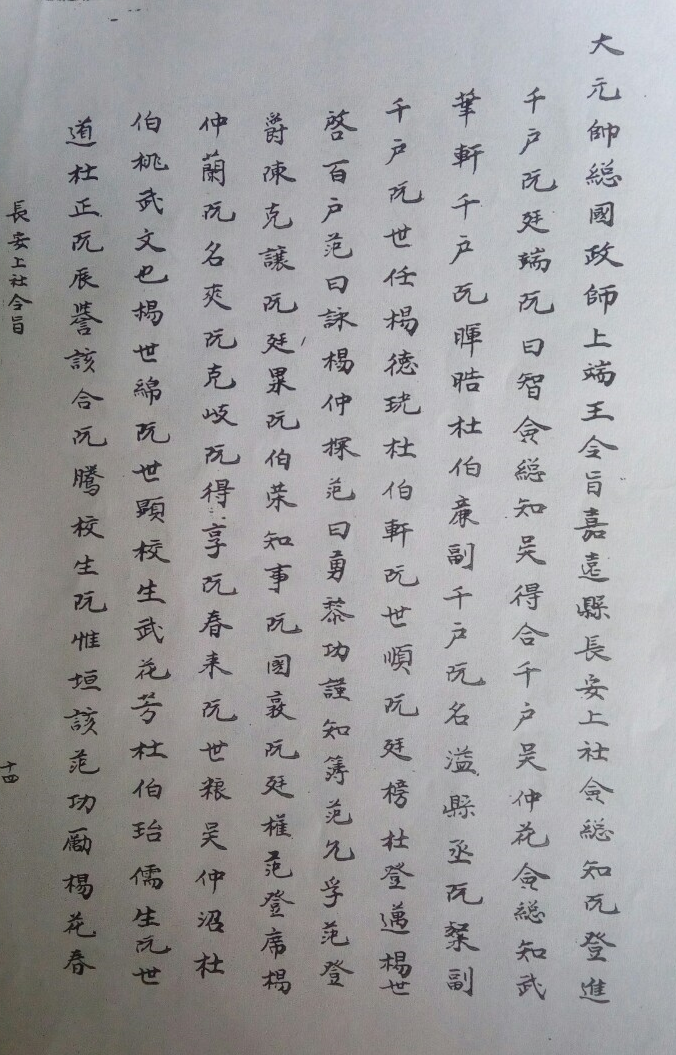 大元帥総國政師上端王令旨嘉遠縣長安上社僉総知阮登進
千户阮廷端阮曰智僉総知吴得合千户吴仲花僉総知武
軒千户阮暉晧杜伯亷副千户阮名溢縣丞阮粲副
千户阮世任楊德珖杜伯軒阮世順阮廷榜杜登邁楊世
啓百户范曰詠楊仲探范曰勇黎功謹知簿范允孚范登
爵陳克讓阮廷累阮伯荣知事阮國敦阮廷權范登席楊
仲蘭阮名爽阮克岐阮得享阮春来阮世粮吴仲沼杜
伯桃武文也楊世綿阮世顕校生武花芳杜伯珆儒生阮世
道杜正阮辰譽該合阮騰校生阮惟垣該范功勵楊花春
長安上社令旨
十四